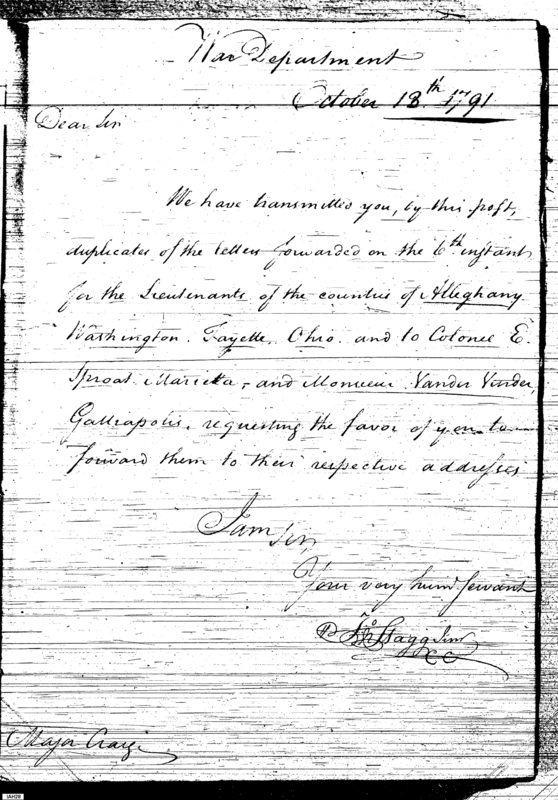 War Department
October 18th 1791
Dear Sir
We have transmitted you, by this post,
duplicates of the letters forwarded on the 6th instant
for the Lieutenants of the counties of Alleghany
Washington. Fayette, Ohio. and to Colonel E.
Sproat Marietta, and Monsieur Vander Vender,
Galleapolis. requesting the favor of you to
forward them to their respective addresses
I am Sir,
Your very hum Servant
Stagg Junr
Major Craig
IAH28